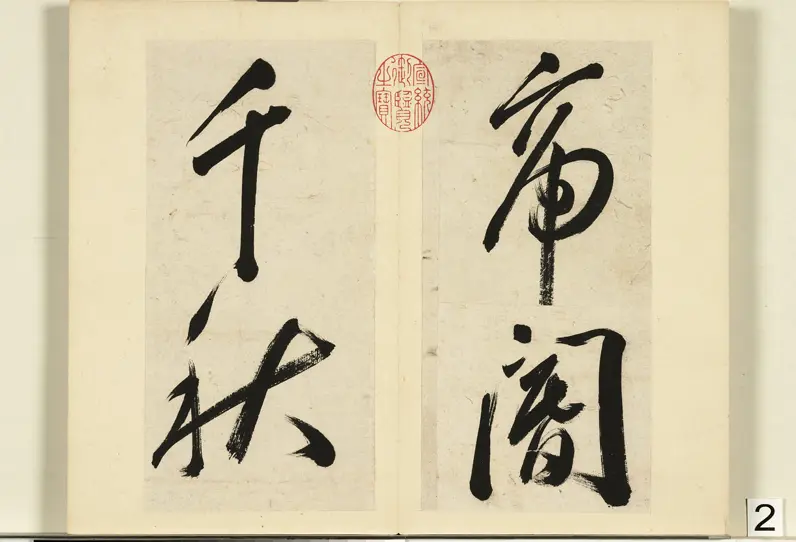 帝閽
宣統
御覽
之寶
千秋
2